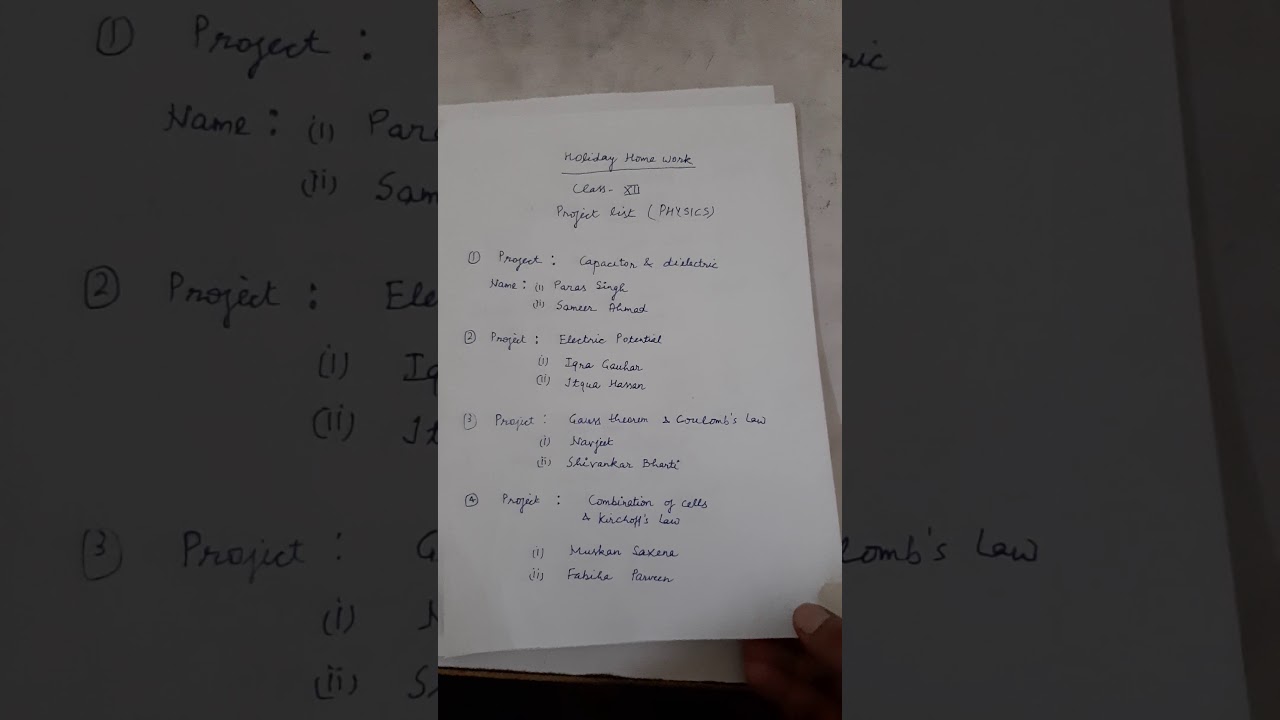 Holiday Home Work
Class - XII
Project list (PHYSICS)
① Project : Capacitor & dielectric
Name : (i) Paras Singh
(ii) Sameer Ahmad
② Project : Electric Potential
(i) Iqra Gauhar
(ii) Itqua Hassan
③ Project : Gauss theorem & Coulomb's Law
(i) Navjeet
(ii) Shivankar Bharti
④ Project : Combination of cells
& Kirchoff's Law
(i) Muskan Saxena
(ii) Fabiha Parveen